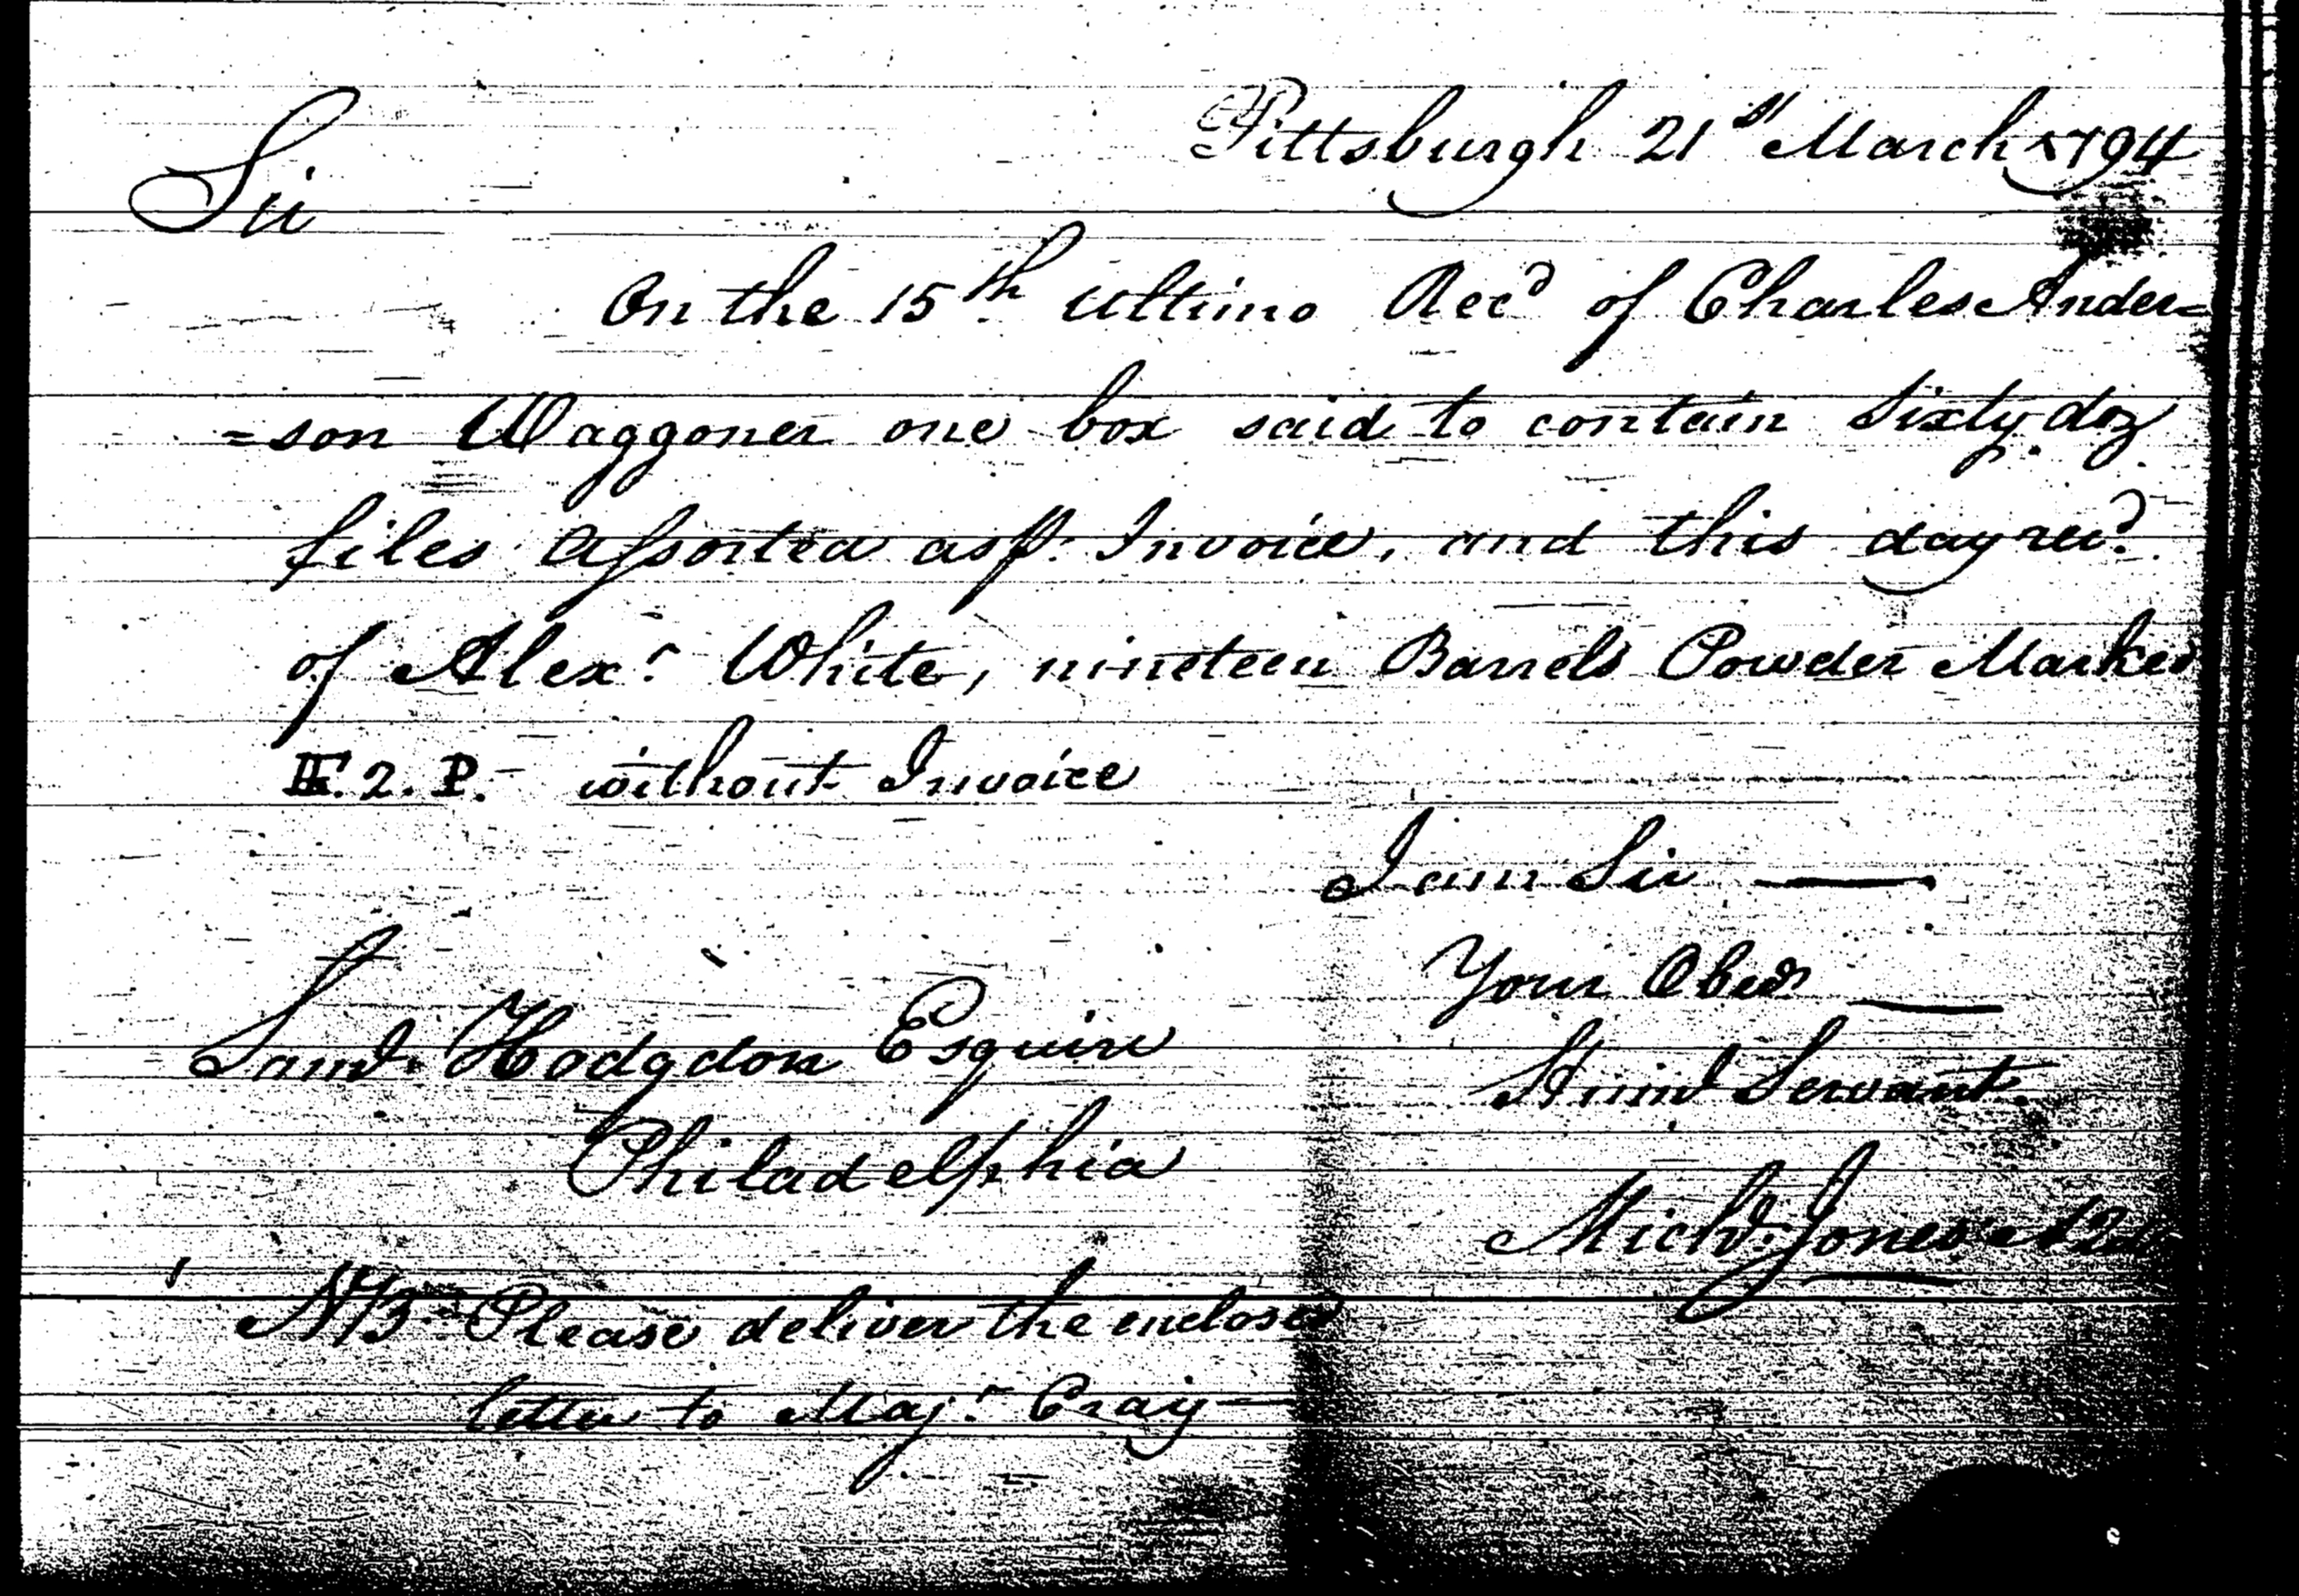 Pittsburgh 21st March 1794
Sir
On the 15th ultimo Recd of Charles Ander=
=son Waggoner one box said to contain Sixty doz
files assorted as p. Invoice, and this day recd
of Alexr. White, nineteen Barrels Powder Marked
2. P. without Invoice
I am Sir
Your Obedt
Huml Servant.
Saml. Hodgdon Esquire
Philadelphia
Michl. Jones
NB Please deliver the enclosed
letter to Majr. Craig